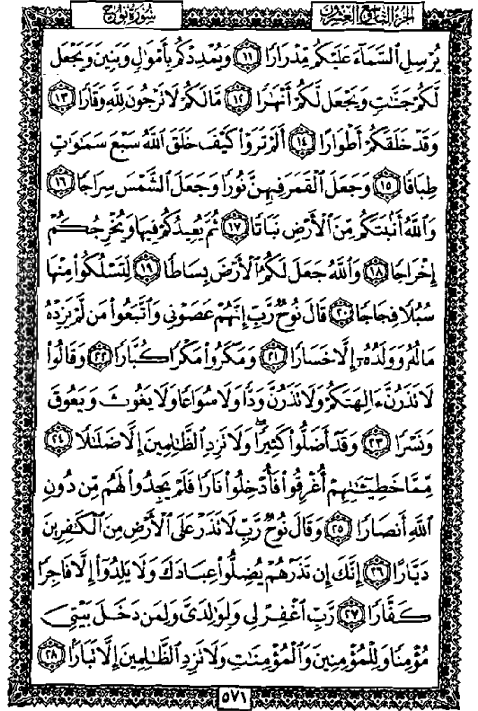 سُورَةُ نُوح الجزء التاسع والعشرون
يُرْسِلِ ٱلسَّمَآءَ عَلَيْكُم مِّدْرَارًا ١١ وَيُمْدِدْكُم بِأَمْوَٰلٍ وَبَنِينَ وَيَجْعَل
لَّكُمْ جَنَّٰتٍ وَيَجْعَل لَّكُمْ أَنْهَٰرًا ١٢ مَّا لَكُمْ لَا تَرْجُونَ لِلَّهِ وَقَارًا ١٣
وَقَدْ خَلَقَكُمْ أَطْوَارًا ١٤ أَلَمْ تَرَوْا۟ كَيْفَ خَلَقَ ٱللَّهُ سَبْعَ سَمَٰوَٰتٍ
طِبَاقًا ١٥ وَجَعَلَ ٱلْقَمَرَ فِيهِنَّ نُورًا وَجَعَلَ ٱلشَّمْسَ سِرَاجًا ١٦
وَٱللَّهُ أَنۢبَتَكُم مِّنَ ٱلْأَرْضِ نَبَاتًا ١٧ ثُمَّ يُعِيدُكُمْ فِيهَا وَيُخْرِجُكُمْ
إِخْرَاجًا ١٨ وَٱللَّهُ جَعَلَ لَكُمُ ٱلْأَرْضَ بِسَاطًا ١٩ لِّتَسْلُكُوا۟ مِنْهَا
سُبُلًا فِجَاجًا ٢٠ قَالَ نُوحٌ رَّبِّ إِنَّهُمْ عَصَوْنِى وَٱتَّبَعُوا۟ مَن لَّمْ يَزِدْهُ
مَالُهُۥ وَوَلَدُهُۥٓ إِلَّا خَسَارًا ٢١ وَمَكَرُوا۟ مَكْرًا كُبَّارًا ٢٢ وَقَالُوا۟
لَا تَذَرُنَّ ءَالِهَتَكُمْ وَلَا تَذَرُنَّ وَدًّا وَلَا سُوَاعًا وَلَا يَغُوثَ وَيَعُوقَ
وَنَسْرًا ٢٣ وَقَدْ أَضَلُّوا۟ كَثِيرًا ۖ وَلَا تَزِدِ ٱلظَّٰلِمِينَ إِلَّا ضَلَٰلًا ٢٤
مِّمَّا خَطِيٓـَٰٔتِهِمْ أُغْرِقُوا۟ فَأُدْخِلُوا۟ نَارًا فَلَمْ يَجِدُوا۟ لَهُم مِّن دُونِ
ٱللَّهِ أَنصَارًا ٢٥ وَقَالَ نُوحٌ رَّبِّ لَا تَذَرْ عَلَى ٱلْأَرْضِ مِنَ ٱلْكَٰفِرِينَ
دَيَّارًا ٢٦ إِنَّكَ إِن تَذَرْهُمْ يُضِلُّوا۟ عِبَادَكَ وَلَا يَلِدُوٓا۟ إِلَّا فَاجِرًا
كَفَّارًا ٢٧ رَّبِّ ٱغْفِرْ لِى وَلِوَٰلِدَىَّ وَلِمَن دَخَلَ بَيْتِىَ
مُؤْمِنًا وَلِلْمُؤْمِنِينَ وَٱلْمُؤْمِنَٰتِ وَلَا تَزِدِ ٱلظَّٰلِمِينَ إِلَّا تَبَارًۢا ٢٨
٥٧١